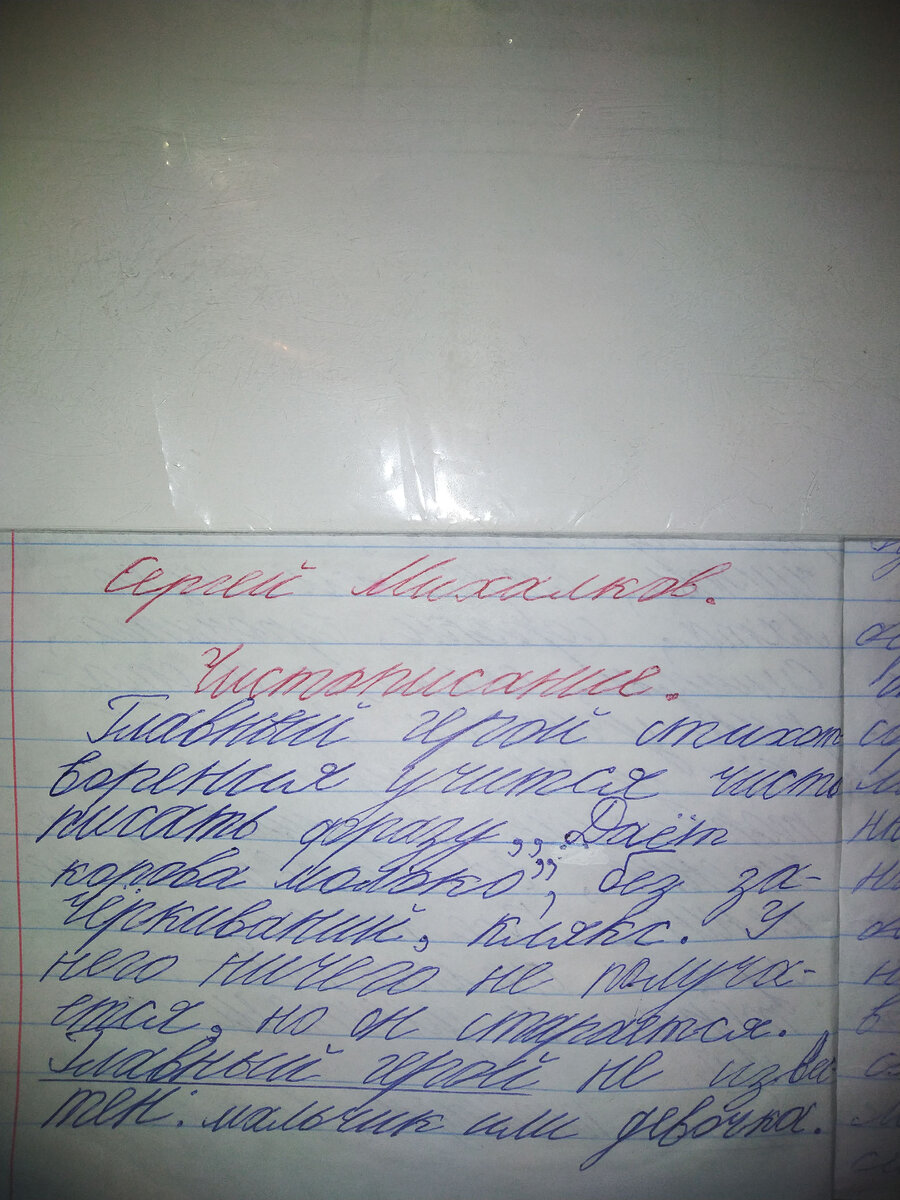 Сергей Михалков.
Чистописание.
Главный герой стихот
ворения учится чисто
писать фразу „Даёт
корова молоко”, без за-
чёркиваний, клякс. У
него ничего не получа-
ется, но он старается.
Главный герой не извес
тен: мальчик или девочка.